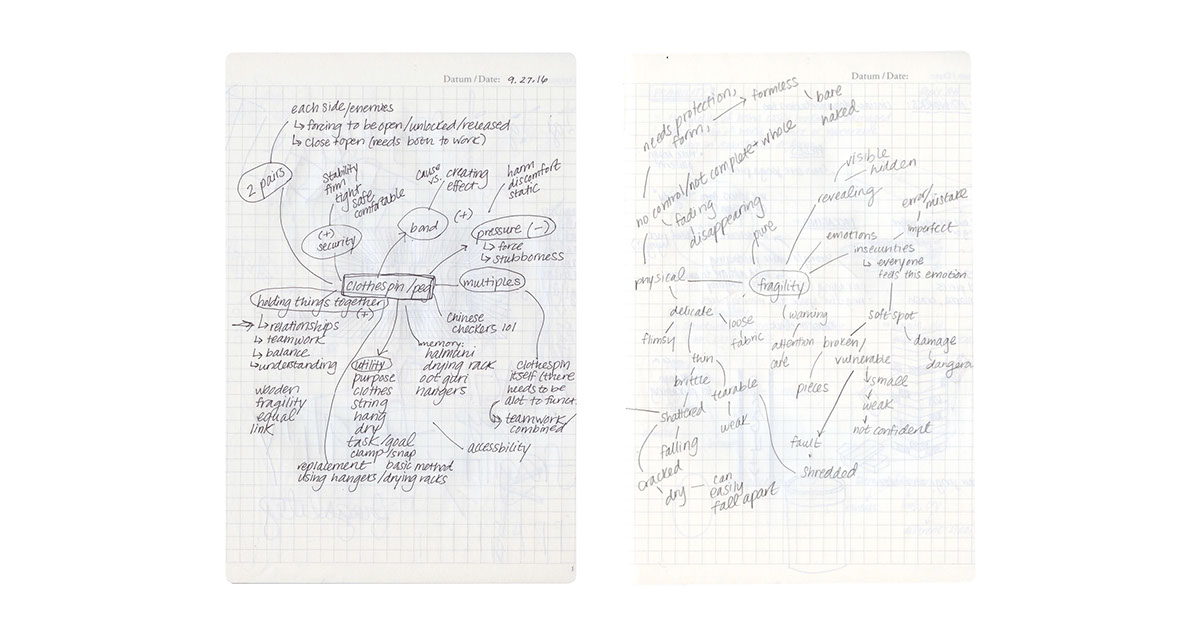 Datum / Date: 9.27.16
each side/enemies
↳ forcing to be open/unlocked/released
↳ close + open (needs both to work)
2 pairs
stability
firm
tight
safe
comfortable
(+)
security
cause
vs.
creating
effect
bond
(+)
harm
discomfort
static
pressure (-)
↳ force
↳ stubborness
clothespin/peg
multiples
holding things together
(+)
↳ relationships
↳ teamwork
↳ balance
↳ understanding
wooden
fragility
equal
link
utility
purpose
clothes
string
hang
dry
task/goal
clamp/snap
replacement
basic method
using hangers/drying racks
chinese
checkers 101
memory:
halmuni
drying rack
hangers
clothespin
itself (there
needs to be
alot to funct.
↳ teamwork/
combined
accessbility
Datum / Date:
needs protection,
form,
formless
bare
naked
no control/not complete + whole
fading
disappearing
pure
visible
hidden
revealing
error/
mistake
imperfect
emotions
insecurities
↳ everyone
feels this emotion
physical
fragility
delicate
loose
fabric
warning
attention
care
soft spot
flimsy
thin
broken/
vulnerable
damage
brittle
tearable
pieces
small
weak
not confident
shattered
weak
falling
fault
cracked
dry
can
easily
fall apart
shredded